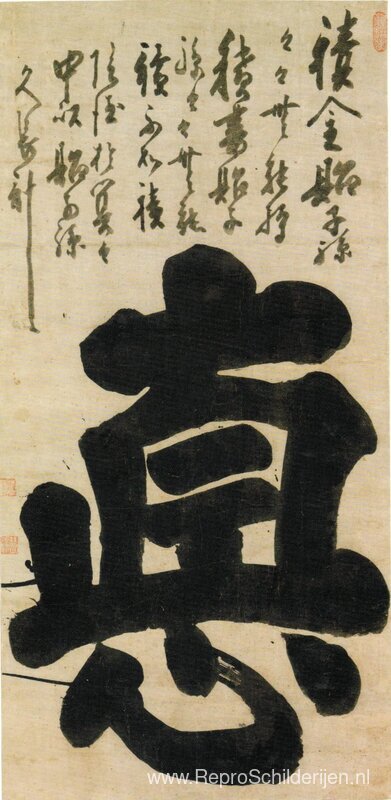 積金貽子孫
々々無能
積書貽子
孫々々無能
讀不如積
陰德於冥々
中以貽子孫
久長計
悳
www.ReproSchilderijen.nl